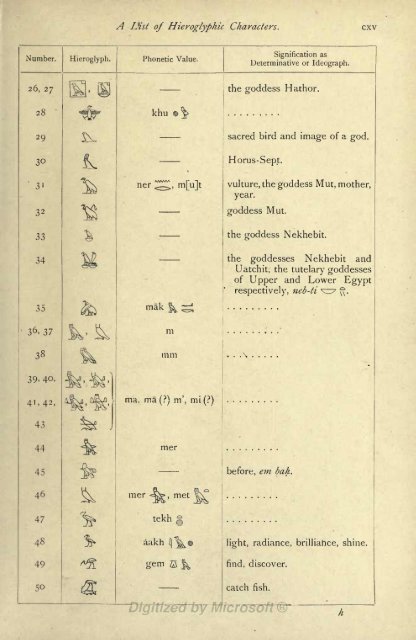 A List of Hieroglyphic Characters. cxv
Number. Hieroglyph. Phonetic Value. Signification as
Determinative or Ideograph.
26, 27 — the goddess Hathor.
28 khu . . . . . . . . .
29 — sacred bird and image of a god.
30 — Horus-Sept.
31 ner , m[u]t vulture, the goddess Mut, mother,
year.
32 — goddess Mut.
33 — the goddess Nekhebit.
34 — the goddesses Nekhebit and
Uatchit, the tutelary goddesses
of Upper and Lower Egypt
respectively, neb-ti
35 māk . . . . . . . .
36, 37 m . . . . . . . .
38 mm . . . . . . . .
39, 40,
41, 42, ma, mā (?) m', mi (?) . . . . . . . .
43
44 mer . . . . . . . .
45 — before, em baḥ.
46 mer , met . . . . . . . .
47 tekh . . . . . . . .
48 åakh light, radiance, brilliance, shine.
49 gem find, discover.
50 — catch fish.
h
Digitized by Microsoft ®